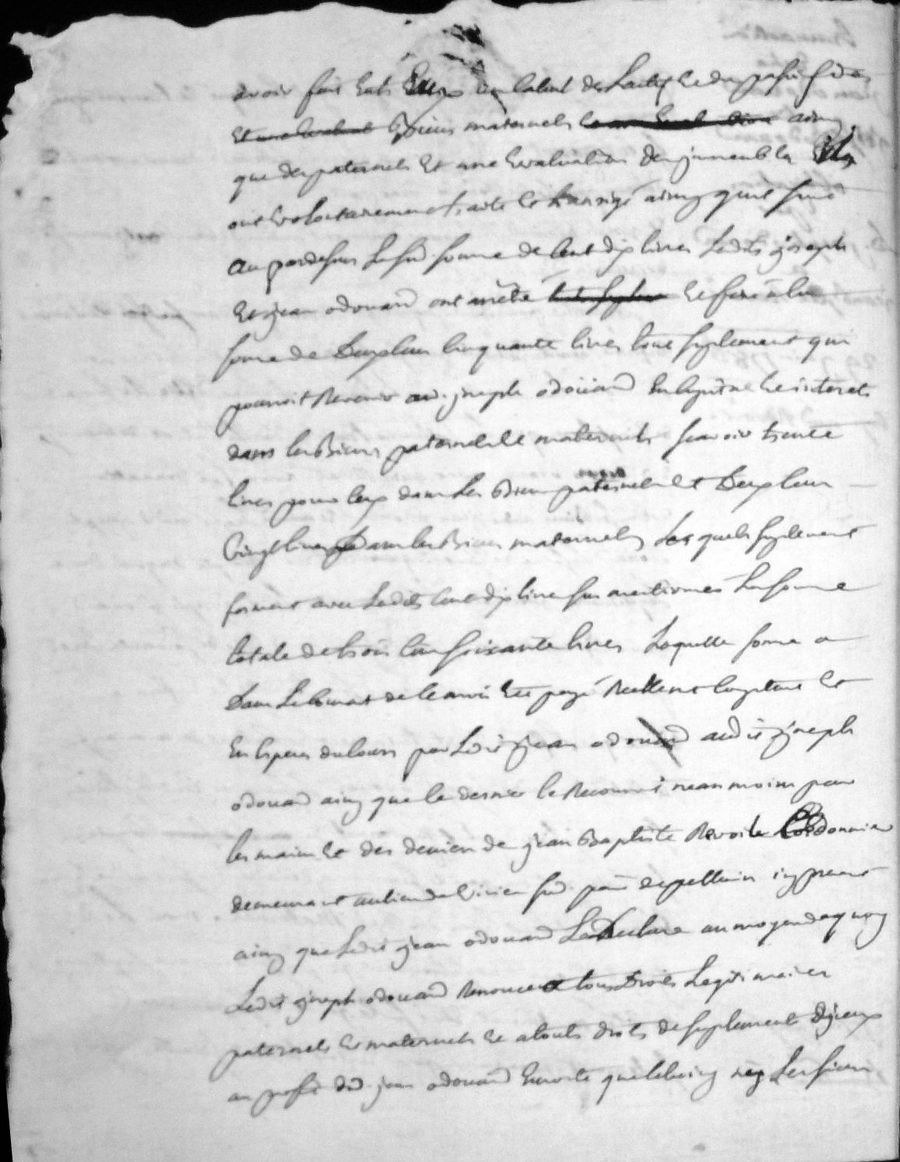 avoir fait entr'eux un calcul de l'actif et du passif des
et une evaluation biens maternels ainsy
que des paternels et une Evaluation des jmmeubles Ils
ont volontairement traité et transigé ainsy quil suit
au pardessus Lasud somme de Cent dix livres Ledits joseph
et jean odouard ont arrêté et fixé à la
somme de Deux Cens Cinquante livres tout suplement qui
pouvoit Revenir aud. joseph odouard En Capital et interets
dans les Biens paternels et maternels scavoir trente
livres pour ceux dans Les Biens paternels et Deux Cens
vingt livres dans les Biens maternels Lesquels suplement
forment avec Ledits Cent dix livres sus mentionnés La somme
totale de trois Cens soixante livres Laquelle somme a
Dans Le Courant de été payé Reellement Comptant et
En Especes du Cours par Ledit jean odouard audit joseph
odouard ainsy que ce dernier le Reconnoit neanmoins par
les mains et des deniers de jean Baptiste Revoil Cordonnier
demeurant au lieu de sud. psse de pellussin icy present
ainsy que Ledit jean odouard Le Declare au moyen de quoy
Ledit joseph odouard Renonce a tous Droits Legitimaires
paternels et maternels et a touts droits de suplement d'jceux
au profit dud. jean odouard Ensorte que celuicy ny Les siens